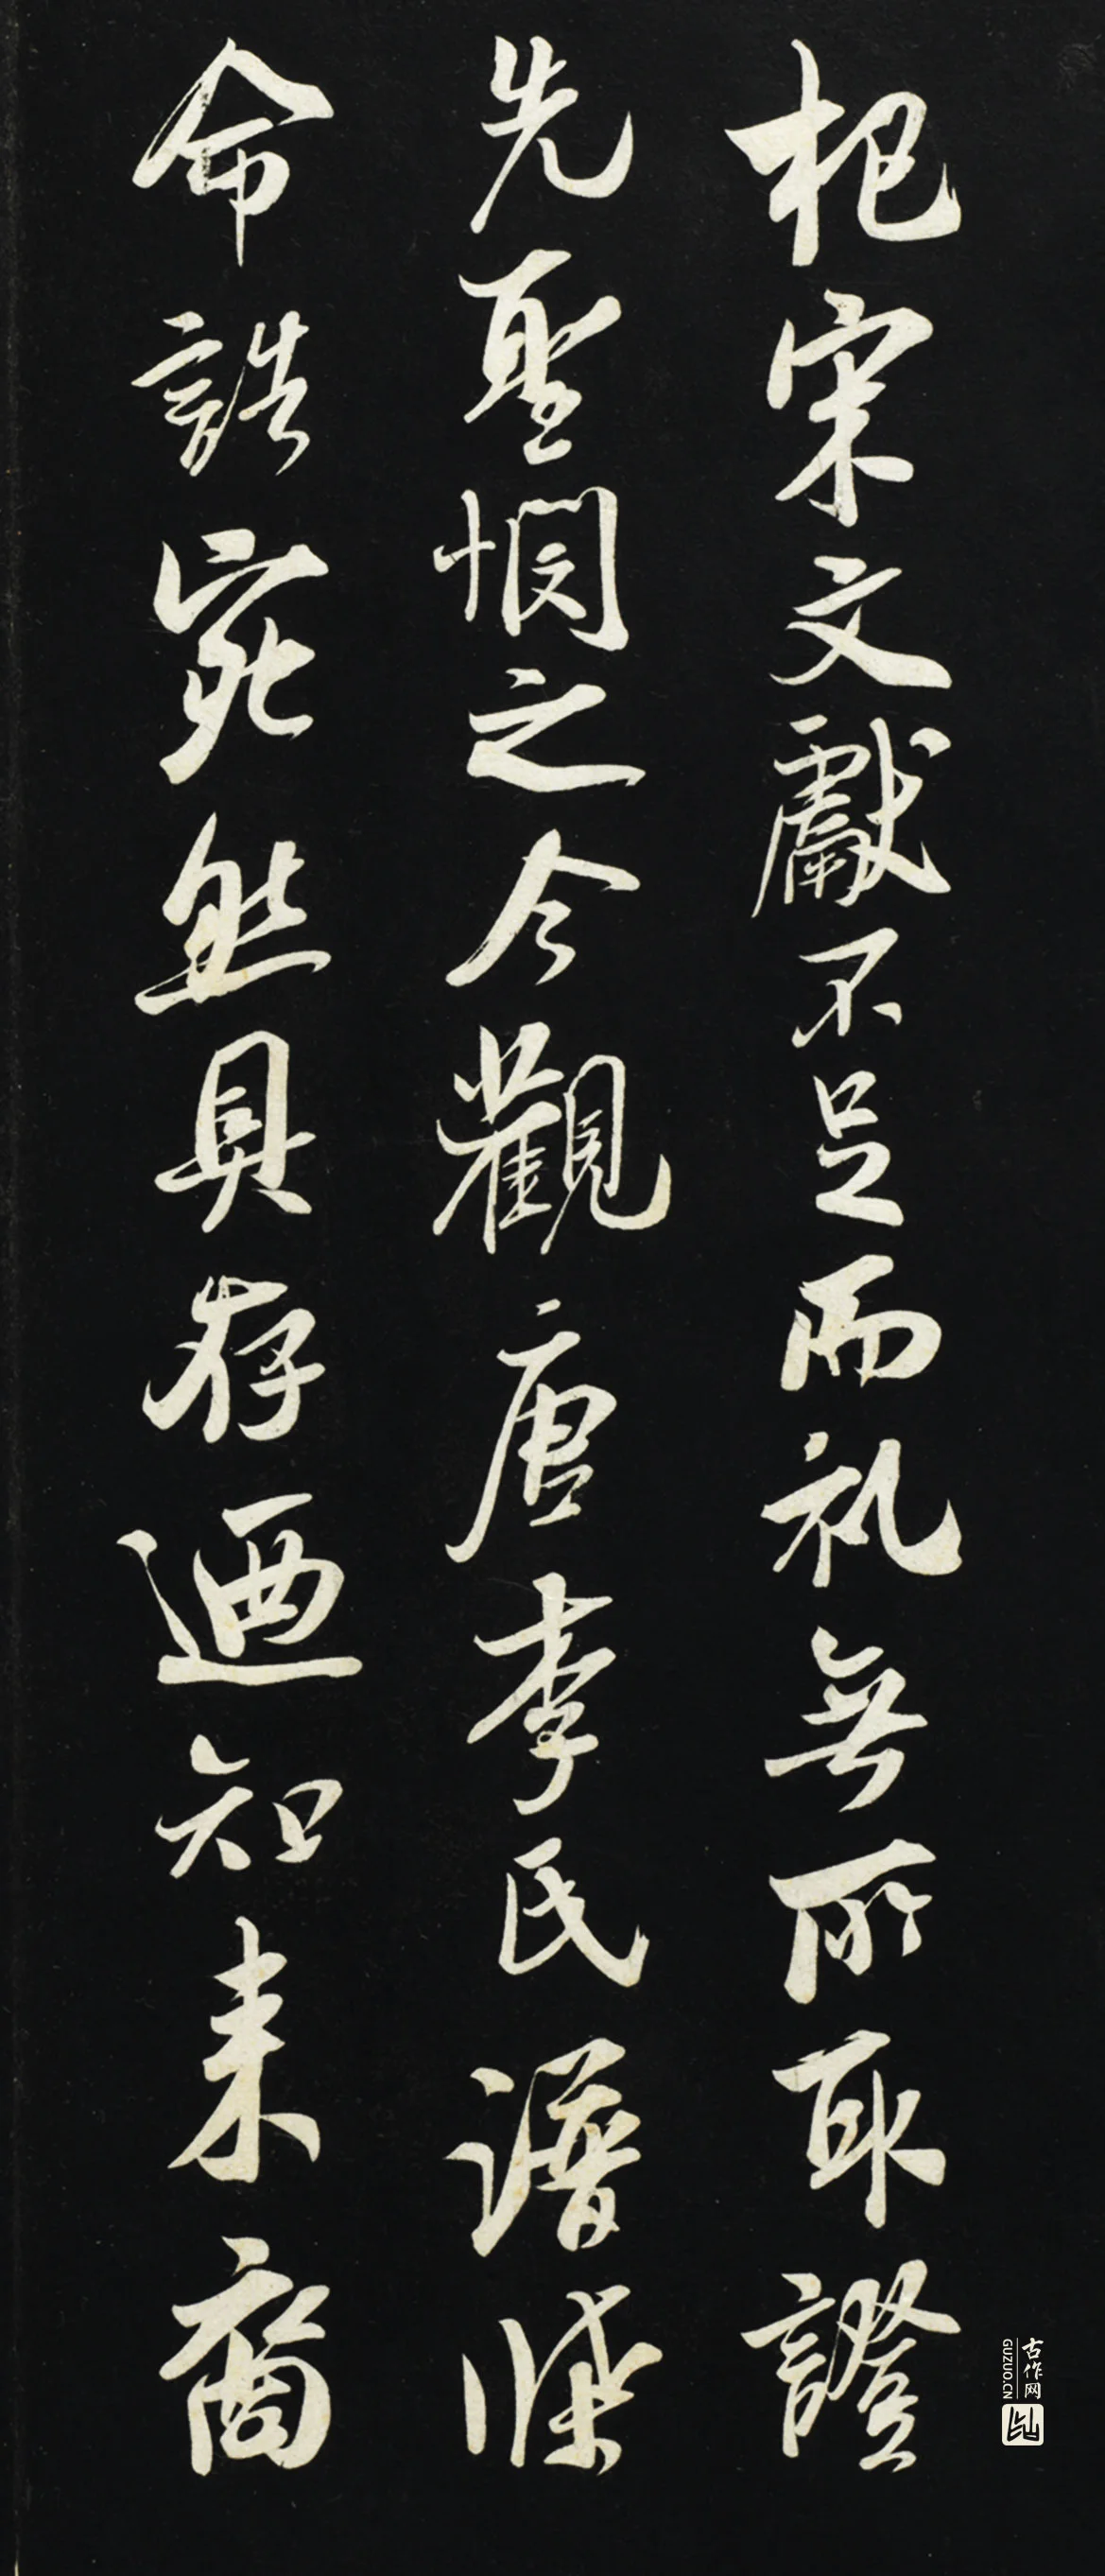 杞宋文獻不足而礼無所取證
先聖憫之今觀唐李氏譜牒
命誥宛然具存迺知来裔
古作网
GUZUO.CN